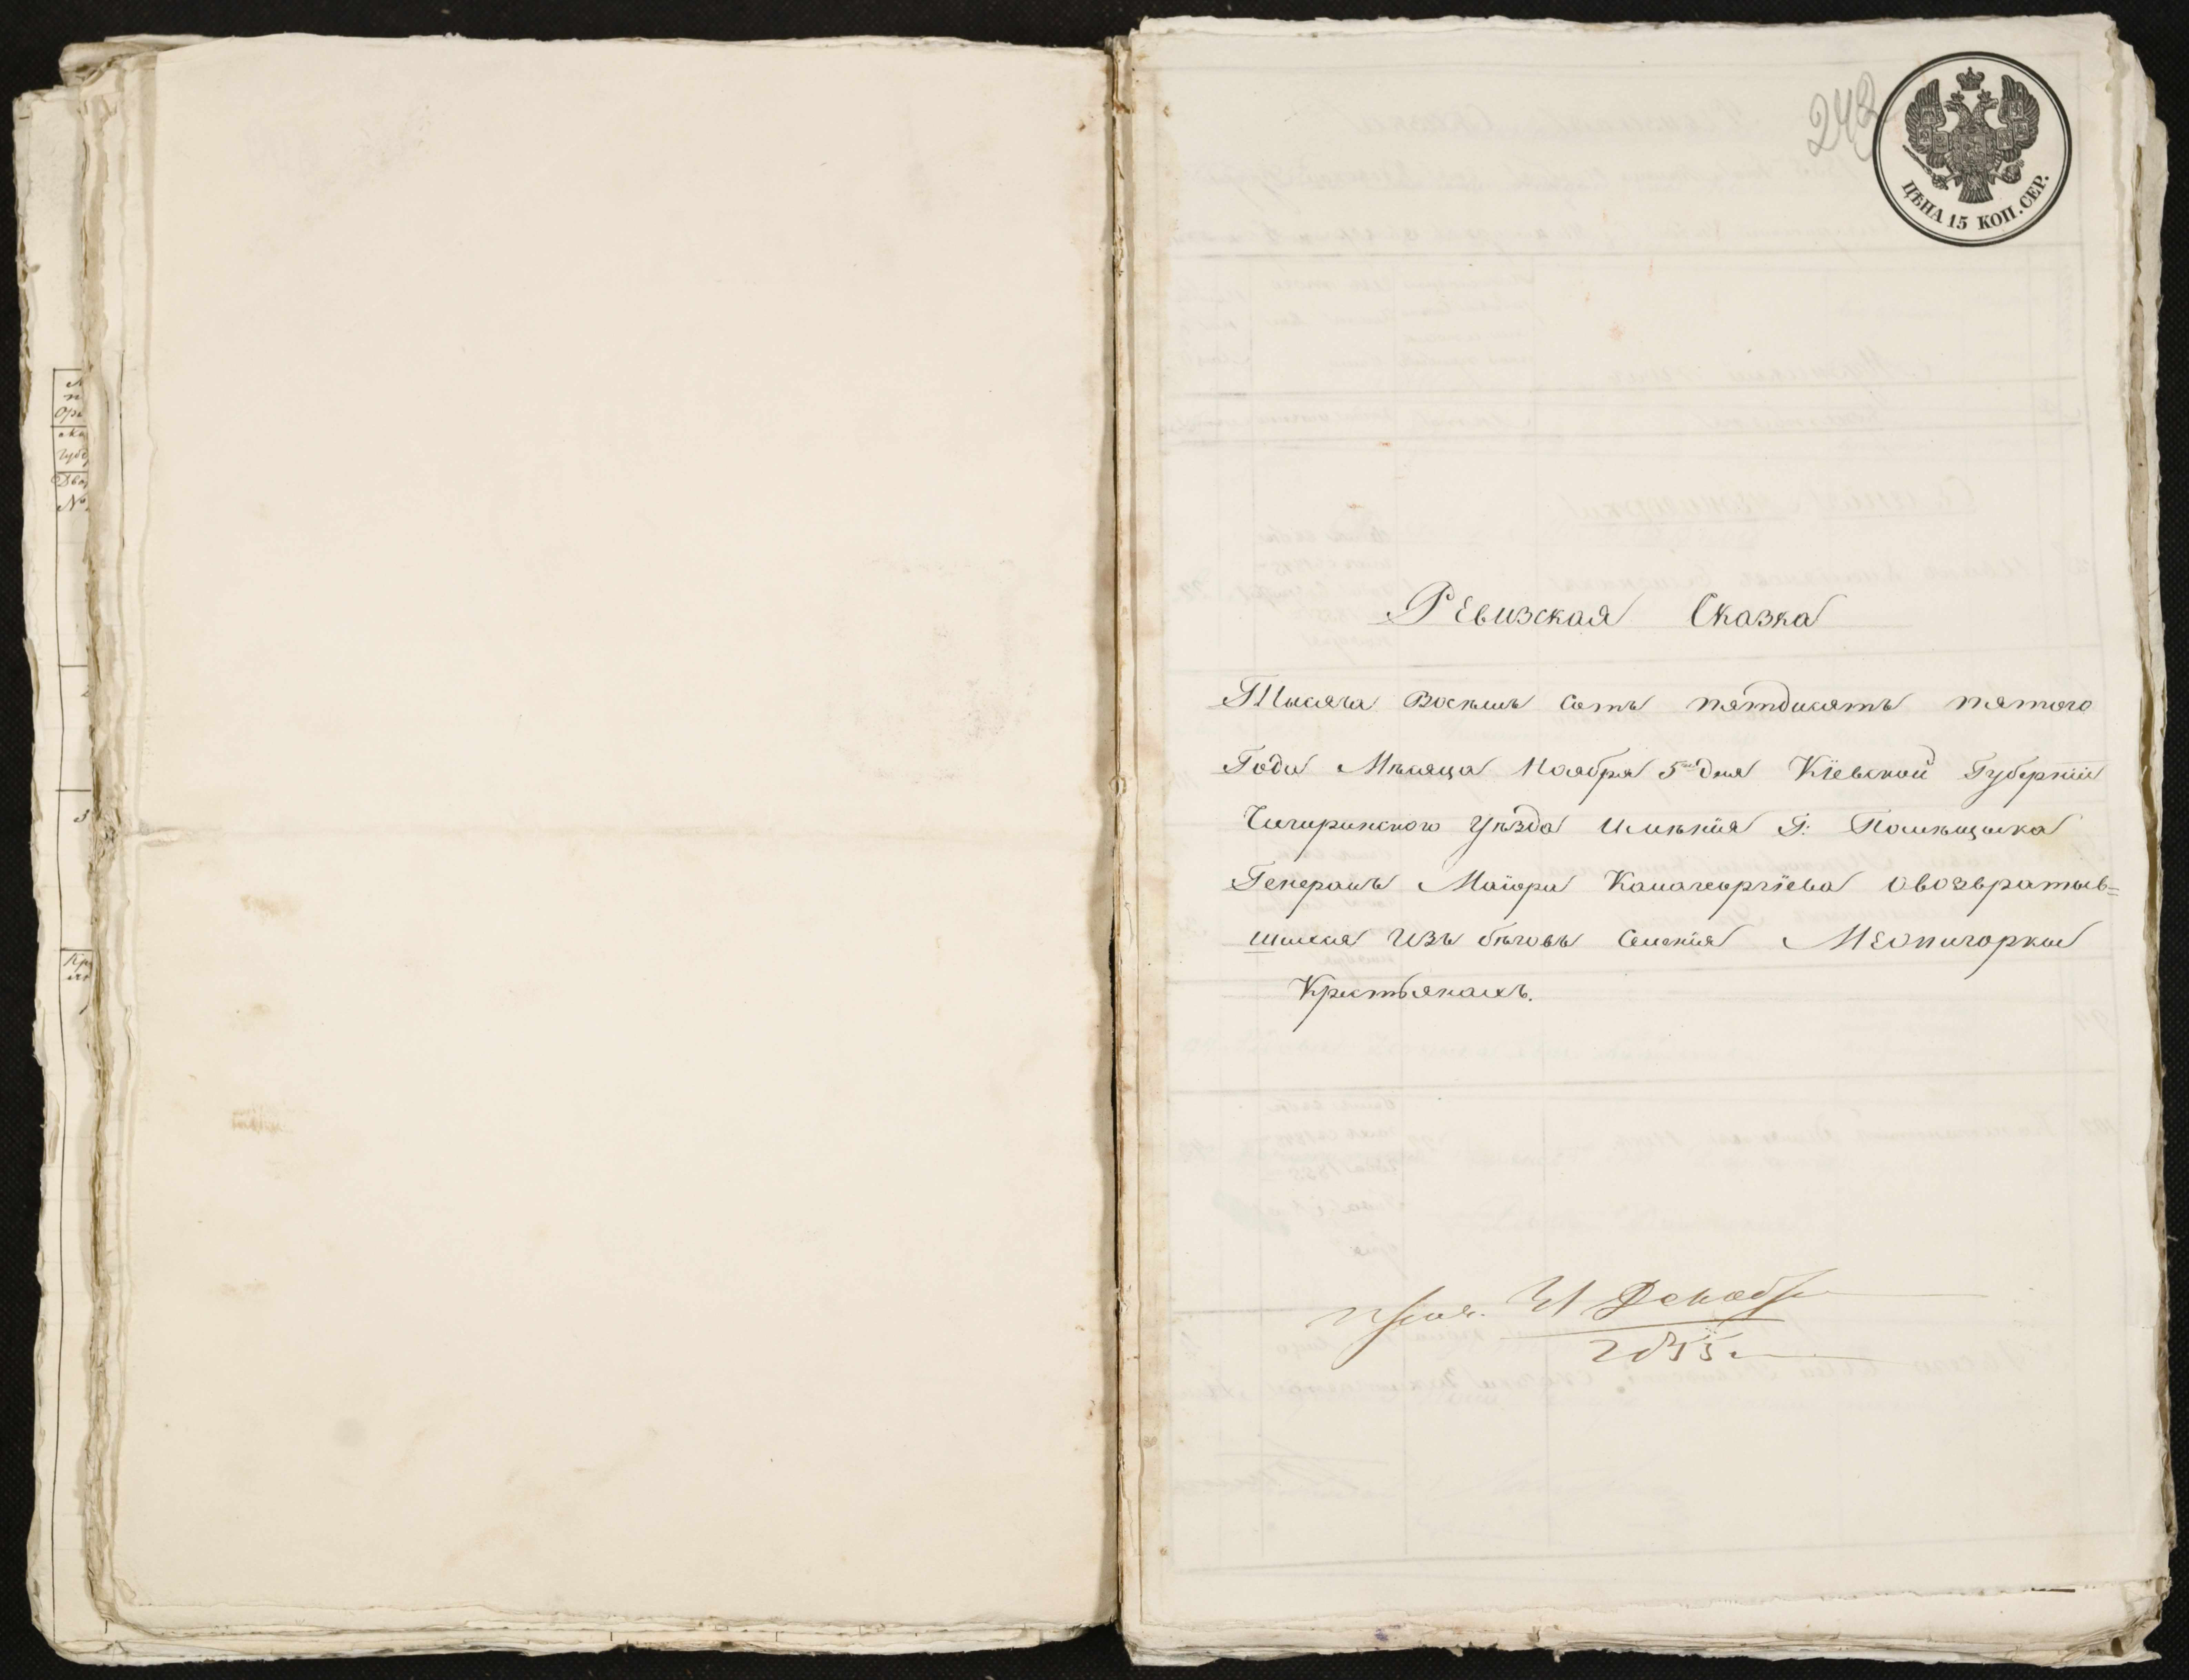 243
ЦѢНА 15 КОП. СЕР.
Ревизская Сказка
Тысяча Восемь сотъ пятдисятъ пятого
Года Мѣсяца Ноября 5го дня Кіевской Губерніи
Чигиринского Уѣзда Имѣнія Г: Помѣщика
Генералъ Маіора Капагеоргіева Овозвратыв=
шихся Изъ бѣговъ Селенія Межигорки
Крестьянахъ.
1855